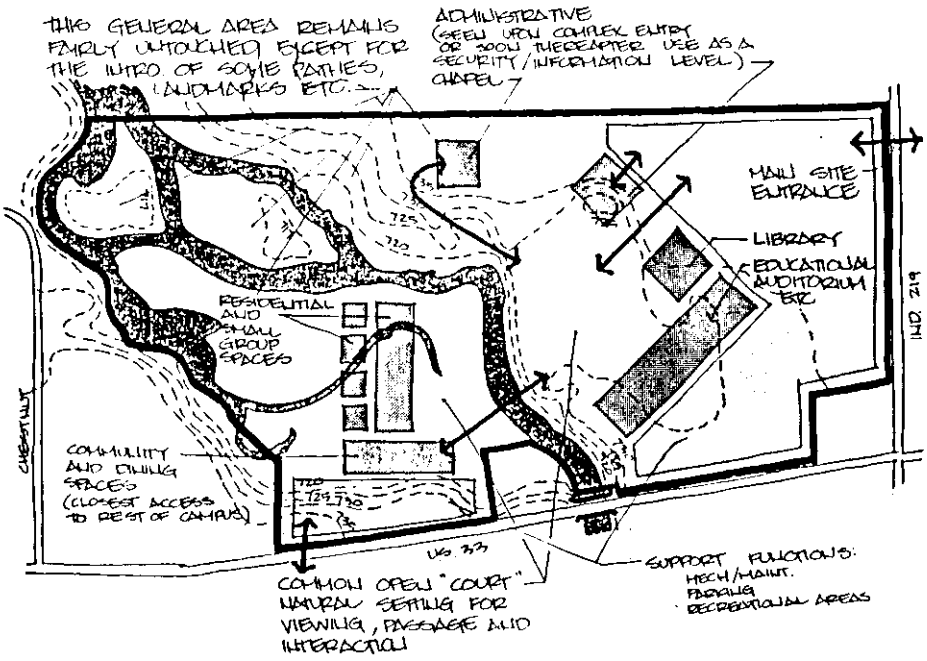 THIS GENERAL AREA REMAINS
FAIRLY UNTOUCHED EXCEPT FOR
THE INTRO. OF SOME PATHES,
LANDMARKS ETC.
ADMINISTRATIVE
(SEEN UPON COMPLEX ENTRY
OR SOON THEREAFTER USE AS A
SECURITY/INFORMATION LEVEL)
CHAPEL
MAIN SITE
ENTRANCE
LIBRARY
EDUCATIONAL
AUDITORIUM
ETC
IND. 219
725
720
735
RESIDENTIAL
AND
SMALL
GROUP
SPACES
CHESTNUT
COMMUNITY
AND DINING
SPACES
(CLOSEST ACCESS
TO REST OF CAMPUS)
720
725
730
735
U.S. 33
COMMON OPEN "COURT"
NATURAL SETTING FOR
VIEWING, PASSAGE AND
INTERACTION
SUPPORT FUNCTIONS:
MECH/MAINT.
PARKING
RECREATIONAL AREAS